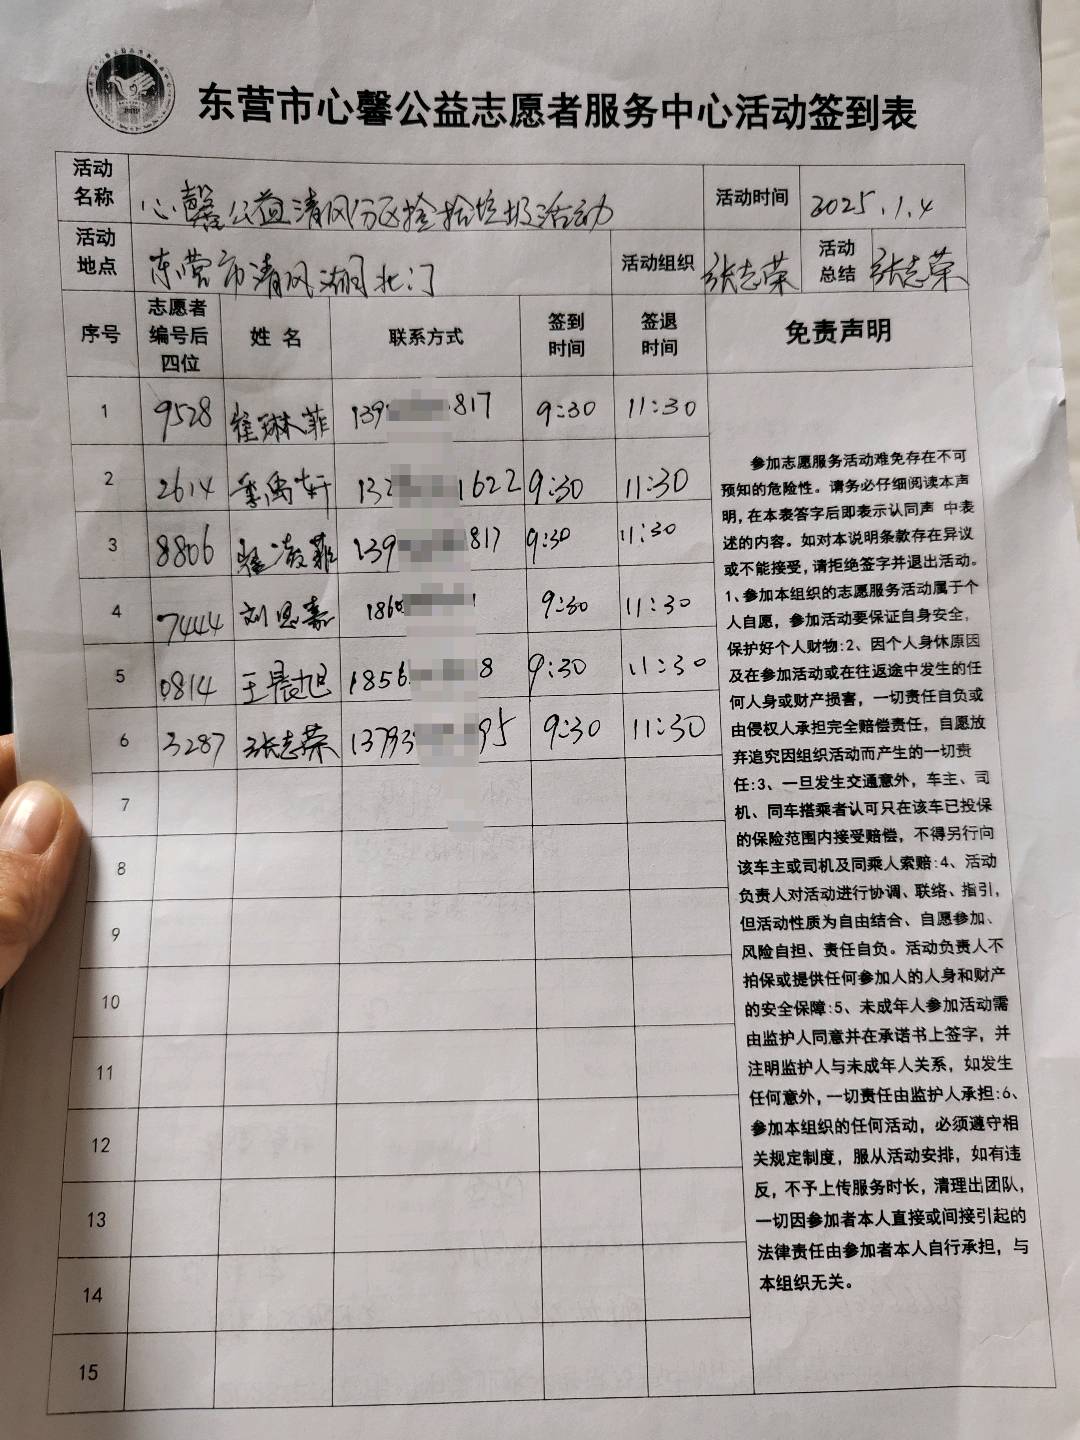 东营市心馨公益志愿者服务中心活动签到表
活动名称 心馨公益清风分区捡拾垃圾活动 活动时间 2025.1.4
活动地点 东营市清风湖北门 活动组织 张志荣 活动总结 张志荣
序号 志愿者编号后四位 姓 名 联系方式 签到时间 签退时间 免责声明
1 9528 崔琳菲 139 817 9:30 11:30
2 2614 季禹轩 132 1622 9:30 11:30
3 8806 崔凌菲 139 817 9:30 11:30
4 7444 刘恩嘉 186 1 9:30 11:30
5 0814 王晨旭 1856 8 9:30 11:30
6 3287 张志荣 13793 95 9:30 11:30
7
8
9
10
11
12
13
14
15
参加志愿服务活动难免存在不可
预知的危险性。请务必仔细阅读本声
明,在本表签字后即表示认同声 中表
述的内容。如对本说明条款存在异议
或不能接受,请拒绝签字并退出活动。
1、参加本组织的志愿服务活动属于个
人自愿，参加活动要保证自身安全，
保护好个人财物:2、因个人身休原因
及在参加活动或在往返途中发生的任
何人身或财产损害，一切责任自负或
由侵权人承担完全赔偿责任，自愿放
弃追究因组织活动而产生的一切责
任:3、一旦发生交通意外，车主、司
机、同车搭乘者认可只在该车已投保
的保险范围内接受赔偿，不得另行向
该车主或司机及同乘人索赔:4、活动
负责人对活动进行协调、联络、指引，
但活动性质为自由结合、自愿参加、
风险自担、责任自负。活动负责人不
拍保或提供任何参加人的人身和财产
的安全保障:5、未成年人参加活动需
由监护人同意并在承诺书上签字，并
注明监护人与未成年人关系，如发生
任何意外,一切责任由监护人承担:6、
参加本组织的任何活动，必须遵守相
关规定制度，服从活动安排，如有违
反，不予上传服务时长，清理出团队，
一切因参加者本人直接或间接引起的
法律责任由参加者本人自行承担，与
本组织无关。